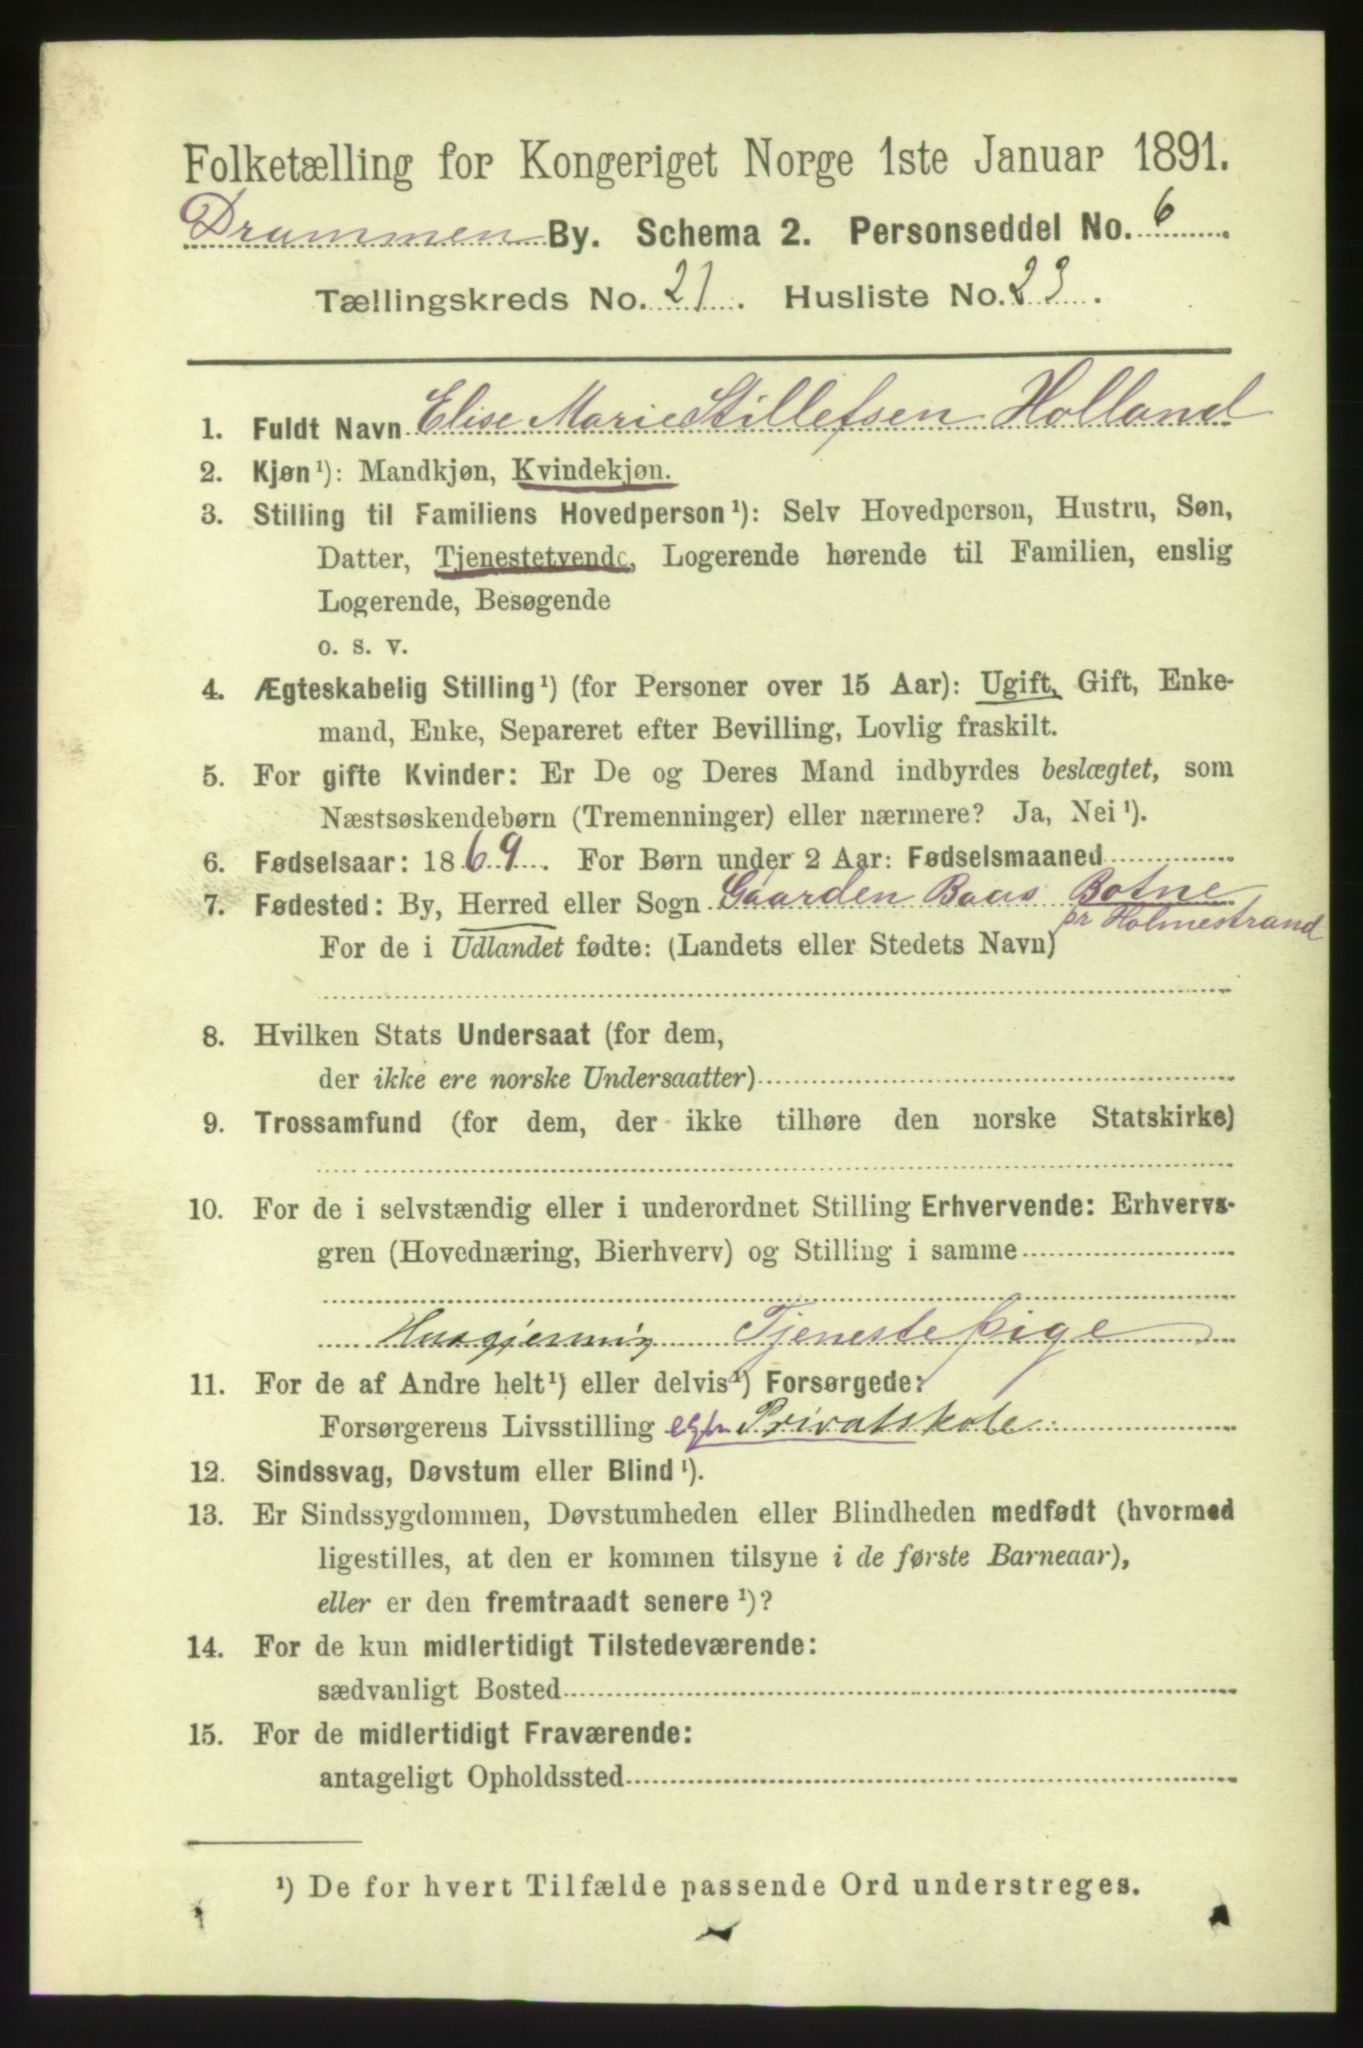 Folketælling for Kongeriget Norge 1ste Januar 1891.
Drammen By. Schema 2. Personseddel No. 6
Tællingskreds No. 21. Husliste No. 23.
1. Fuldt Navn Elise Marie Stillefsen Holland
2. Kjøn¹): Mandkjøn, Kvindekjøn.
3. Stilling til Familiens Hovedperson¹): Selv Hovedperson, Hustru, Søn,
Datter, Tjenestetyende, Logerende hørende til Familien, enslig
Logerende, Besøgende
o. s. v.
4. Ægteskabelig Stilling¹) (for Personer over 15 Aar): Ugift, Gift, Enke-
mand, Enke, Separeret efter Bevilling, Lovlig fraskilt.
5. For gifte Kvinder: Er De og Deres Mand indbyrdes beslægtet, som
Næstsøskendebørn (Tremenninger) eller nærmere? Ja, Nei¹).
6. Fødselsaar: 1869. For Børn under 2 Aar: Fødselsmaaned
7. Fødested: By, Herred eller Sogn Gaarden Baas Botne
pr Holmestrand
For de i Udlandet fødte: (Landets eller Stedets Navn)
8. Hvilken Stats Undersaat (for dem,
der ikke ere norske Undersaatter)
9. Trossamfund (for dem, der ikke tilhøre den norske Statskirke)
10. For de i selvstændig eller i underordnet Stilling Erhvervende: Erhvervs-
gren (Hovednæring, Bierhverv) og Stilling i samme
Husgjerning Tjenestepige
11. For de af Andre helt¹) eller delvis¹) Forsørgede:
Forsørgerens Livsstilling Privatskole
12. Sindssvag, Døvstum eller Blind¹).
13. Er Sindssygdommen, Døvstumheden eller Blindheden medfødt (hvormed
ligestilles, at den er kommen tilsyne i de første Barneaar),
eller er den fremtraadt senere¹)?
14. For de kun midlertidigt Tilstedeværende:
sædvanligt Bosted
15. For de midlertidigt Fraværende:
antageligt Opholdssted
¹) De for hvert Tilfælde passende Ord understreges.